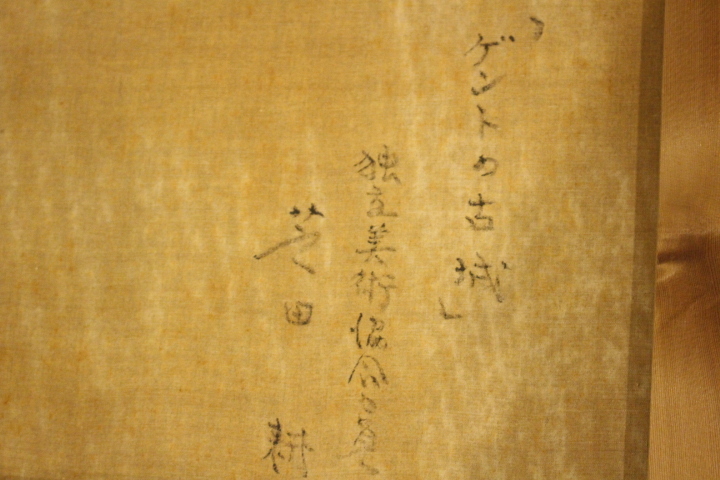 「ゲントの古城」
独立美術協会会員
芝田耕